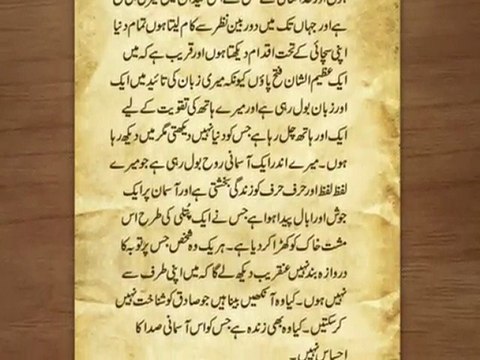 ہے اور جہاں تک میں دوربین نظر سے کام لیتا ہوں تمام دنیا
اپنی سچائی کے تحت اقدام دیکھتا ہوں اور قریب ہے کہ میں
ایک عظیم الشان فتح پاؤں کیونکہ میری زبان کی تائید میں ایک
اور زبان بول رہی ہے اور میرے ہاتھ کی تقویت کے لیے
ایک اور ہاتھ چل رہا ہے جس کو دنیا نہیں دیکھتی مگر میں دیکھ رہا
ہوں۔ میرے اندر ایک آسمانی روح بول رہی ہے جو میرے
لفظ لفظ اور حرف حرف کو زندگی بخشتی ہے اور آسمان پر ایک
جوش اور ابال پیدا ہوا ہے جس نے ایک پُتلی کی طرح اس
مشت خاک کو کھڑا کر دیا ہے۔ ہر یک وہ شخص جس پر توبہ کا
دروازہ بند نہیں عنقریب دیکھ لے گا کہ میں اپنی طرف سے
نہیں ہوں۔ کیا وہ آنکھیں بینا ہیں جو صادق کو شناخت نہیں
کر سکتیں۔ کیا وہ بھی زندہ ہے جس کو اس آسمانی صدا کا
احساس نہیں۔